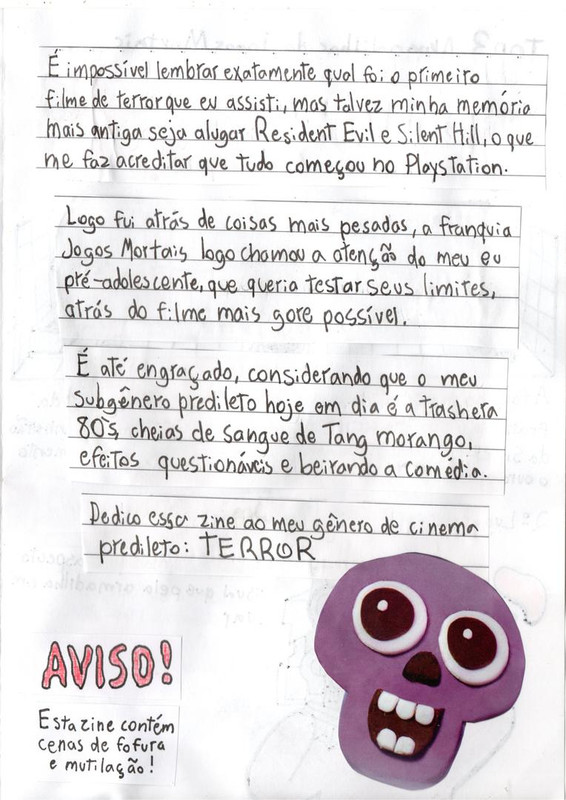 É impossível lembrar exatamente qual foi o primeiro
filme de terror que eu assisti, mas talvez minha memória
mais antiga seja alugar Resident Evil e Silent Hill, o que
me faz acreditar que tudo começou no Playstation.
Logo fui atrás de coisas mais pesadas, a franquia
Jogos Mortais logo chamou a atenção do meu eu
pré-adolescente, que queria testar seus limites,
atrás do filme mais gore possível.
É até engraçado, considerando que o meu
subgênero predileto hoje em dia é a trasheta
80's, cheias de sangue de Tang morango,
efeitos questionáveis e beirando a comédia.
Dedico essa zine ao meu gênero de cinema
predileto: TERROR
AVISO!
Esta zine contém
cenas de fofura
e mutilação!